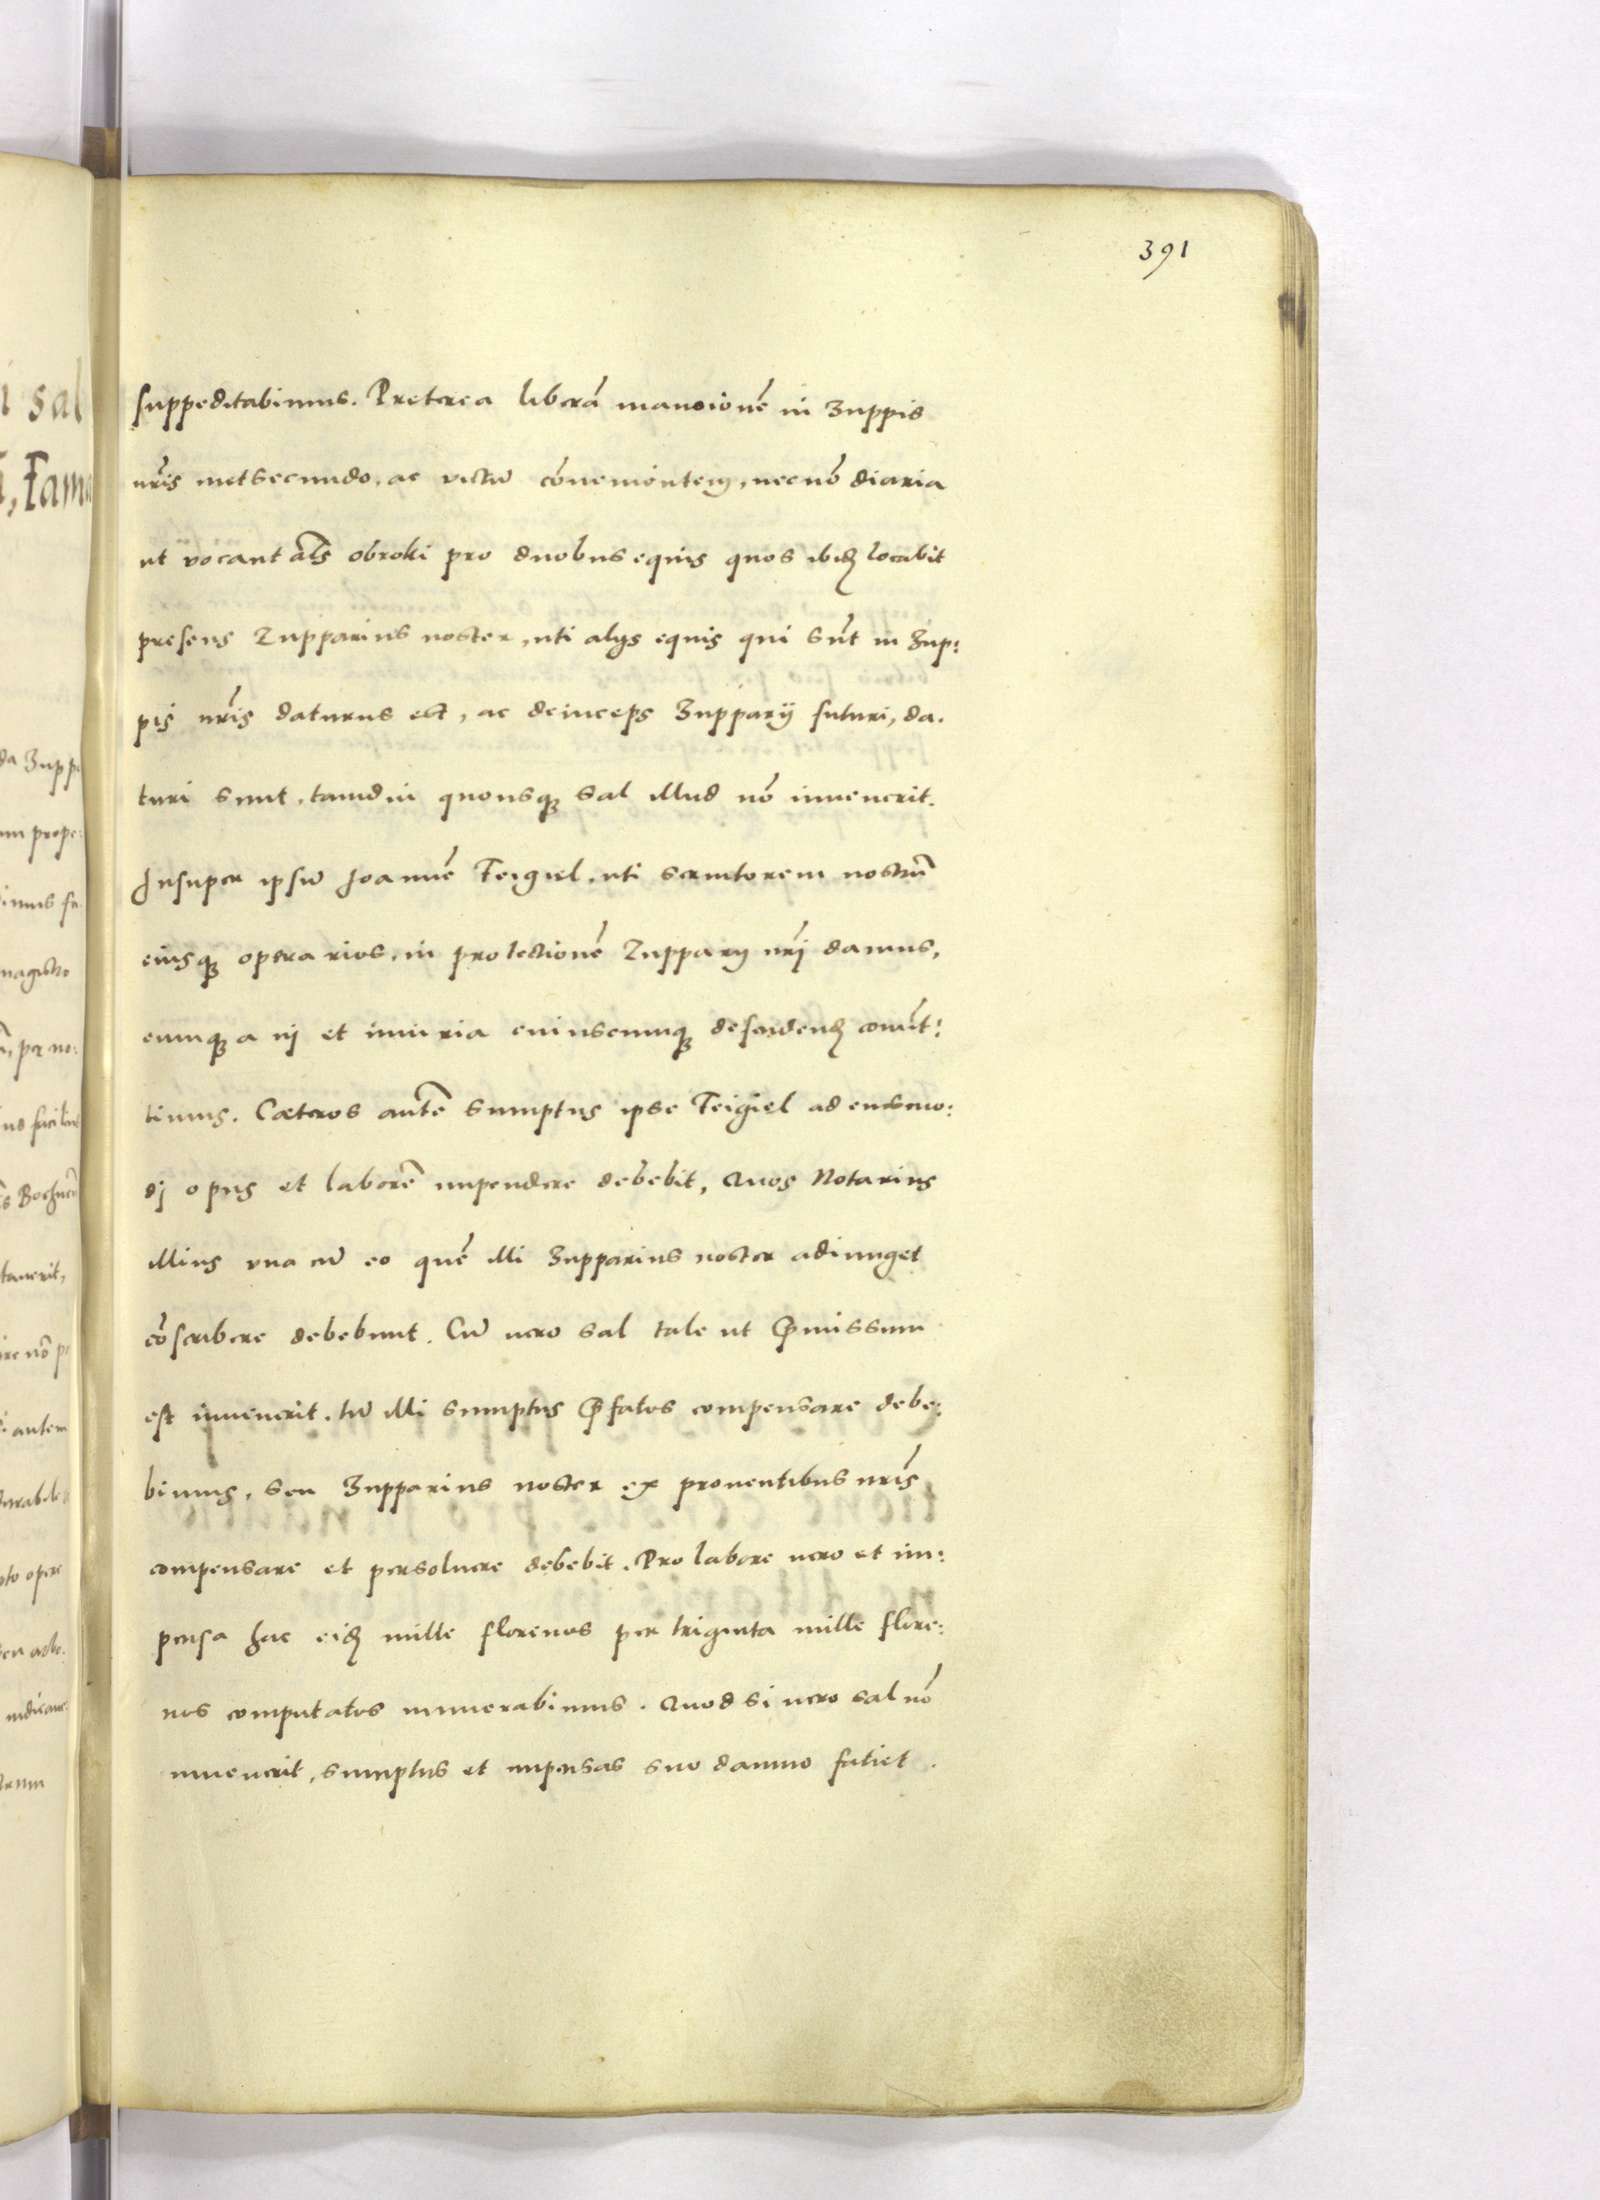 391
suppeditabimus. Preterea liberā mansionē in Zuppis
nr̄is metsecundo, ac victū cōuenientem, necnō diaria
ut vocant al̄s obroki pro duobus equis quos ibid locabit
presens Zupparius noster, uti alijs equis qui sūt in Zup:
pis nr̄is daturus est, ac deinceps Zupparij futuri, da.
turi sunt, tamdiu quousq; sal illud nō inuenerit.
Insuper ipsū Joannē Feigiel, uti scrutorem nostrū
eiusq; operarios, in protectionē Zupparij nr̄i damus,
eumq; a vj et iniuria cuiuscumq; defendend com̄it:
timus. Cæteros autē sumptus ipse Feigiel ad eiusmo:
dj opus et laborē impendere debebit, Quos Notarius
illius vna cū eo quē illi Zupparius noster adiunget
cōscribere debebunt. Cū uero sal tale ut p̄missum
est inuenerit, tū illi sumptus p̄fatos compensare debe:
bimus, seu Zupparius noster ex prouentibus nr̄is
compensare et persoluere debebit. Pro labore uero et im:
pensa hac eid mille florenos per triginta mille flore:
nos computatos numerabimus. Quod si uero sal nō
inuenerit, sumptus et impensas suo damno fatiet.